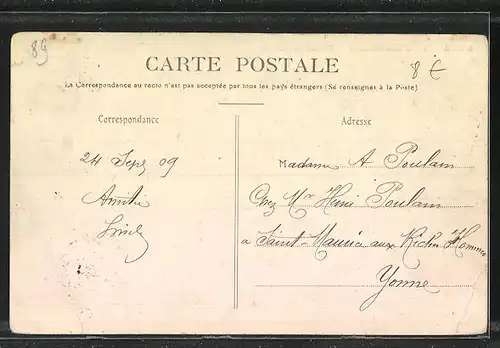 89
8 €
CARTE POSTALE
La Correspondance au recto n'est pas acceptée par tous les pays étrangers (Se renseigner à la Poste)
Correspondance
Adresse
24 Sept 09
Madame A Poulain
Chez Mr Henri Poulain
a Saint-Maurice aux Riches Hommes
Yonne